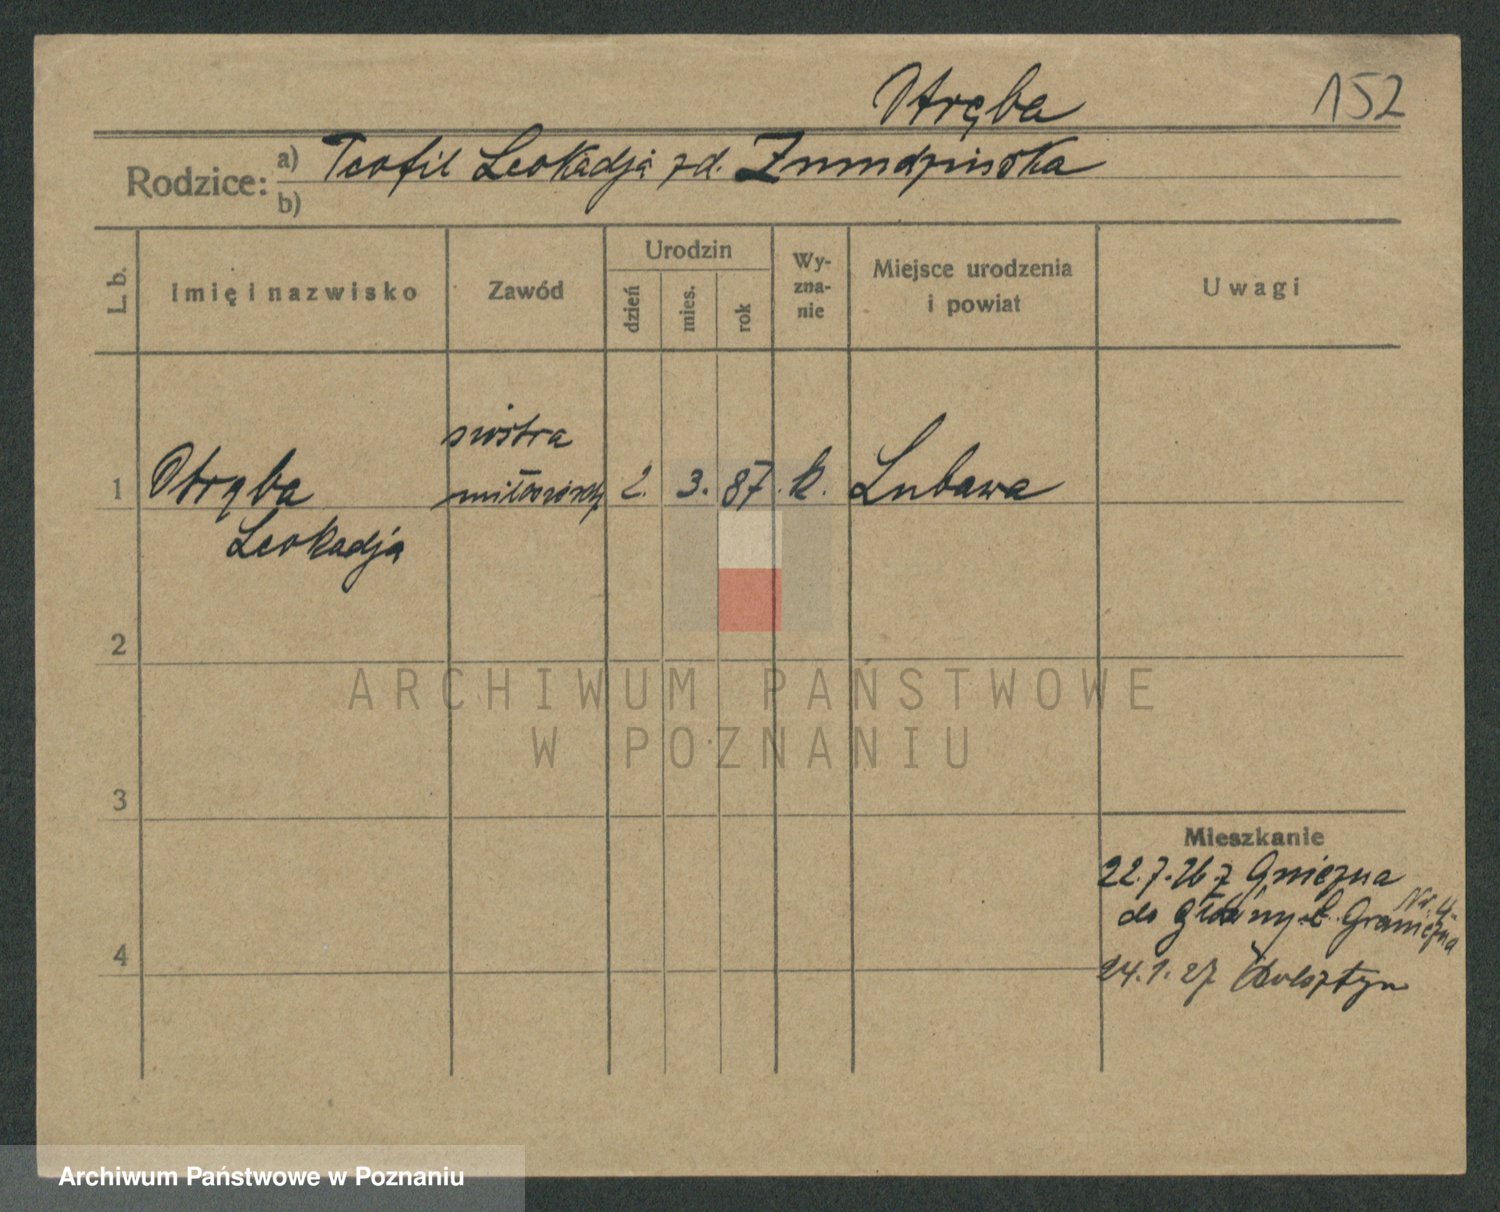 Otręba
152
Rodzice:
a) Teofil Leokadja zd.
b)
L. b.
Imię i nazwisko
Zawód
Urodzin
dzień
mies.
rok
Wy-
zna-
nie
Miejsce urodzenia
i powiat
Uwagi
siostra
1 Otręba miłosierdz 2. 3. 87. k. Lubawa
Leokadja
2
ARCHIWUM PAŃSTWOWE
W POZNANIU
3
Mieszkanie
22.7.26 z Gniezna
do Graniczna
Nr. 4.
4
24.1.27 Wolsztyn
Archiwum Państwowe w Poznaniu